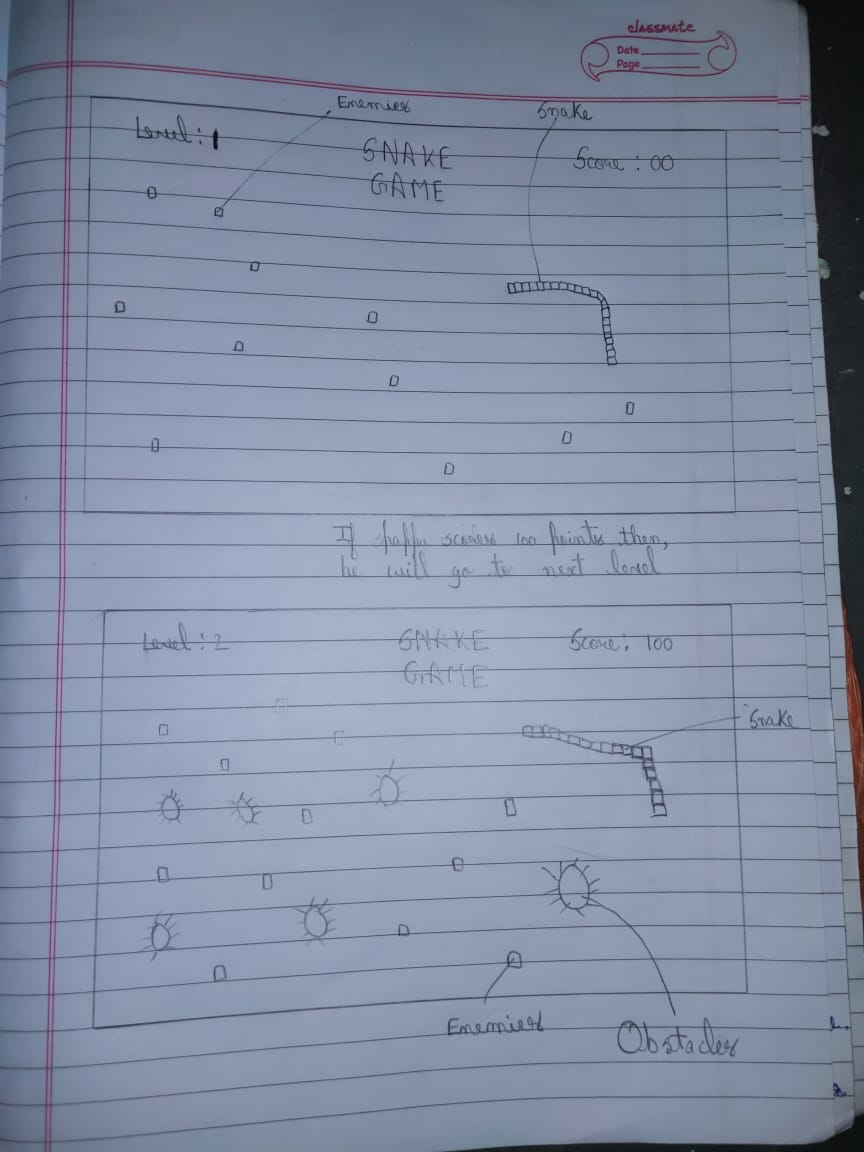 classmate
Date
Page
Enemies
Snake
Level: 1
SNAKE
GAME
Score: 00
If pappu scores 100 points then,
he will go to next level
Level: 2
SNAKE
GAME
Score: 100
Snake
Enemies
Obstacles